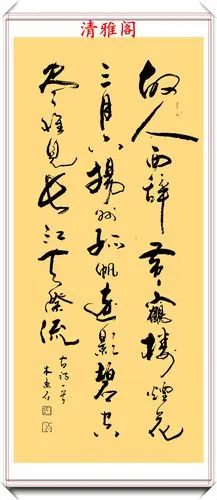 清雅阁
故人西辞黄鹤楼煙花
三月下揚州孤帆遠影碧空
尽唯見长江天際流
古诗一首